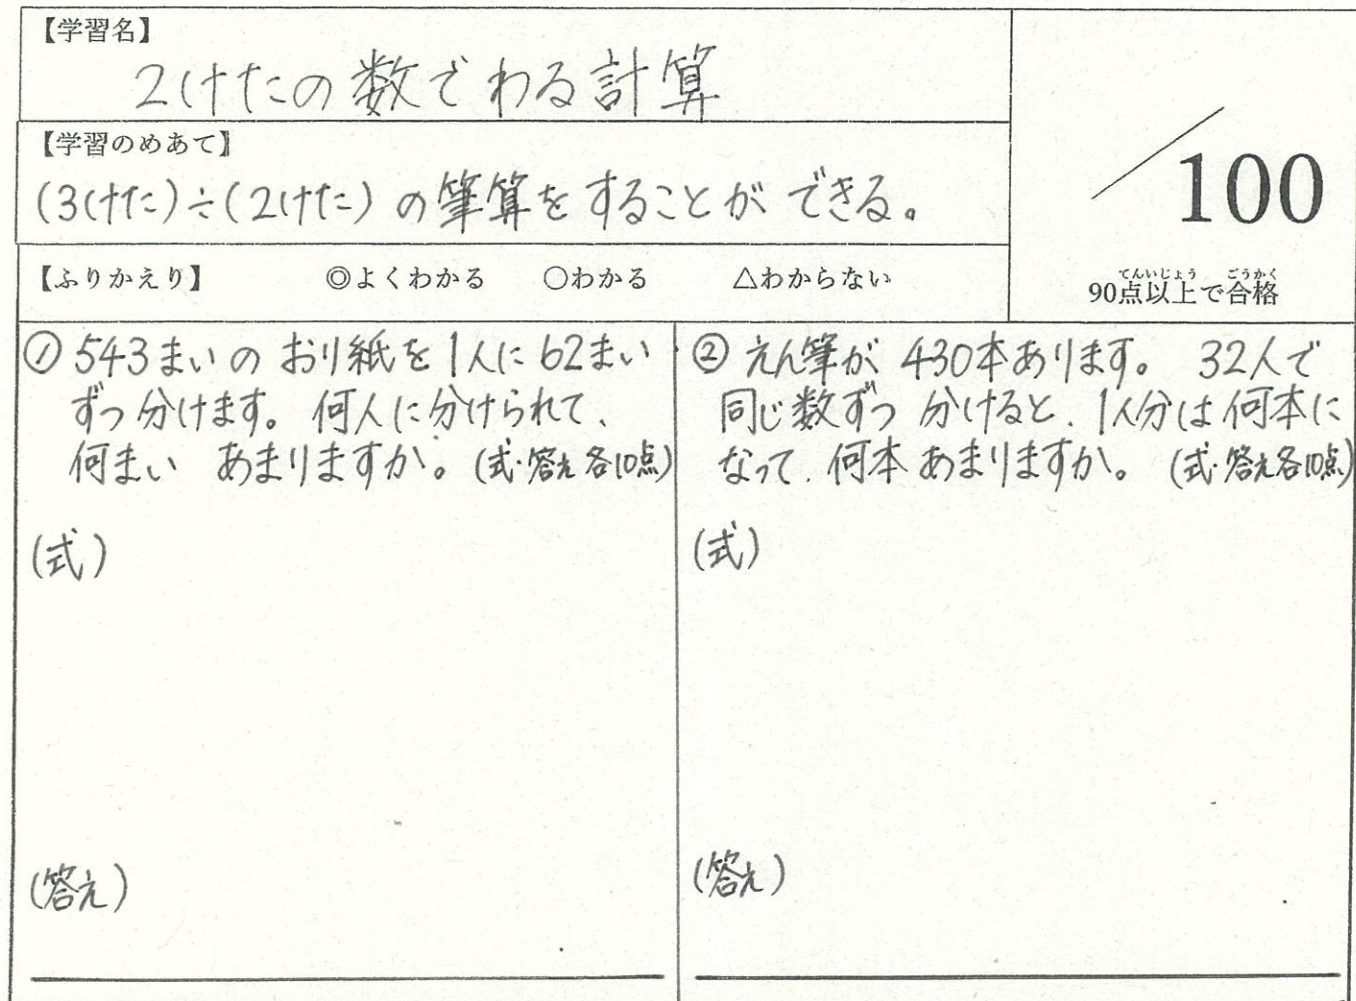 【学習名】
2けたの数でわる計算
【学習のめあて】
(3けた)÷(2けた)の筆算をすることができる。
【ふりかえり】 ◎よくわかる ○わかる △わからない
／100
てんいじょう ごうかく
90点以上で合格
① 543まいの おり紙を 1人に 62まい
ずつ 分けます。 何人に分けられて、
何まい あまりますか。(式・答え各10点)
(式)
(答え)
② えん筆が 430本あります。 32人で
同じ数ずつ 分けると、1人分は 何本に
なって、何本 あまりますか。 (式・答え各10点)
(式)
(答え)